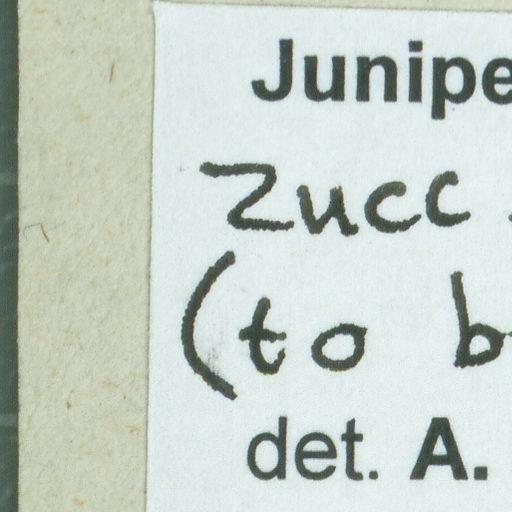 Junipe
Zucc.
(to b
det. A.